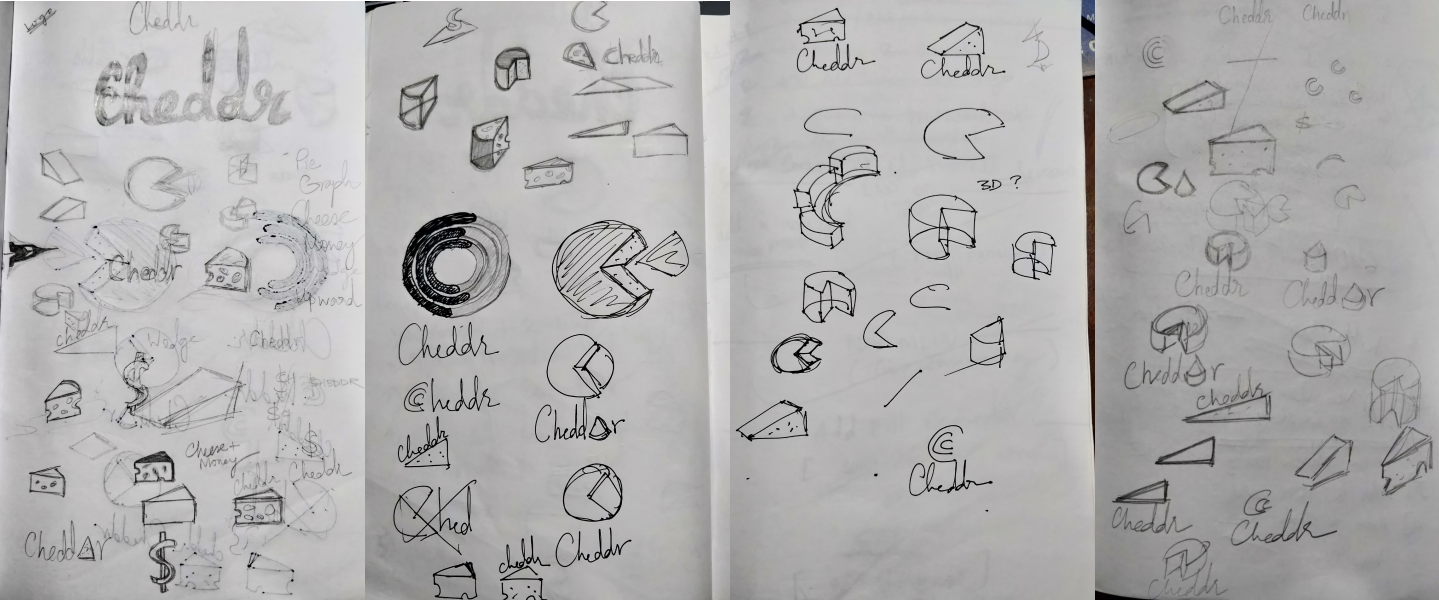 Logo
Cheddr
Cheddr
Pie
Graph
Cheese
Money
Upward
Cheddr
cheddr
Wedge
Cheddr
CHEDDR
$
$
Cheese +
Money
Cheddr
Cheddr
Chedd r
$
Cheddr
Cheddr
Cheddr
cheddr
Ched
Chedd r
cheddr
Cheddr
Cheddr
Cheddr
3D ?
Cheddr
Cheddr
Cheddr
$
Cheddr
Chedd r
Chedd r
Cheddr
Cheddr
Cheddr
Cheddr